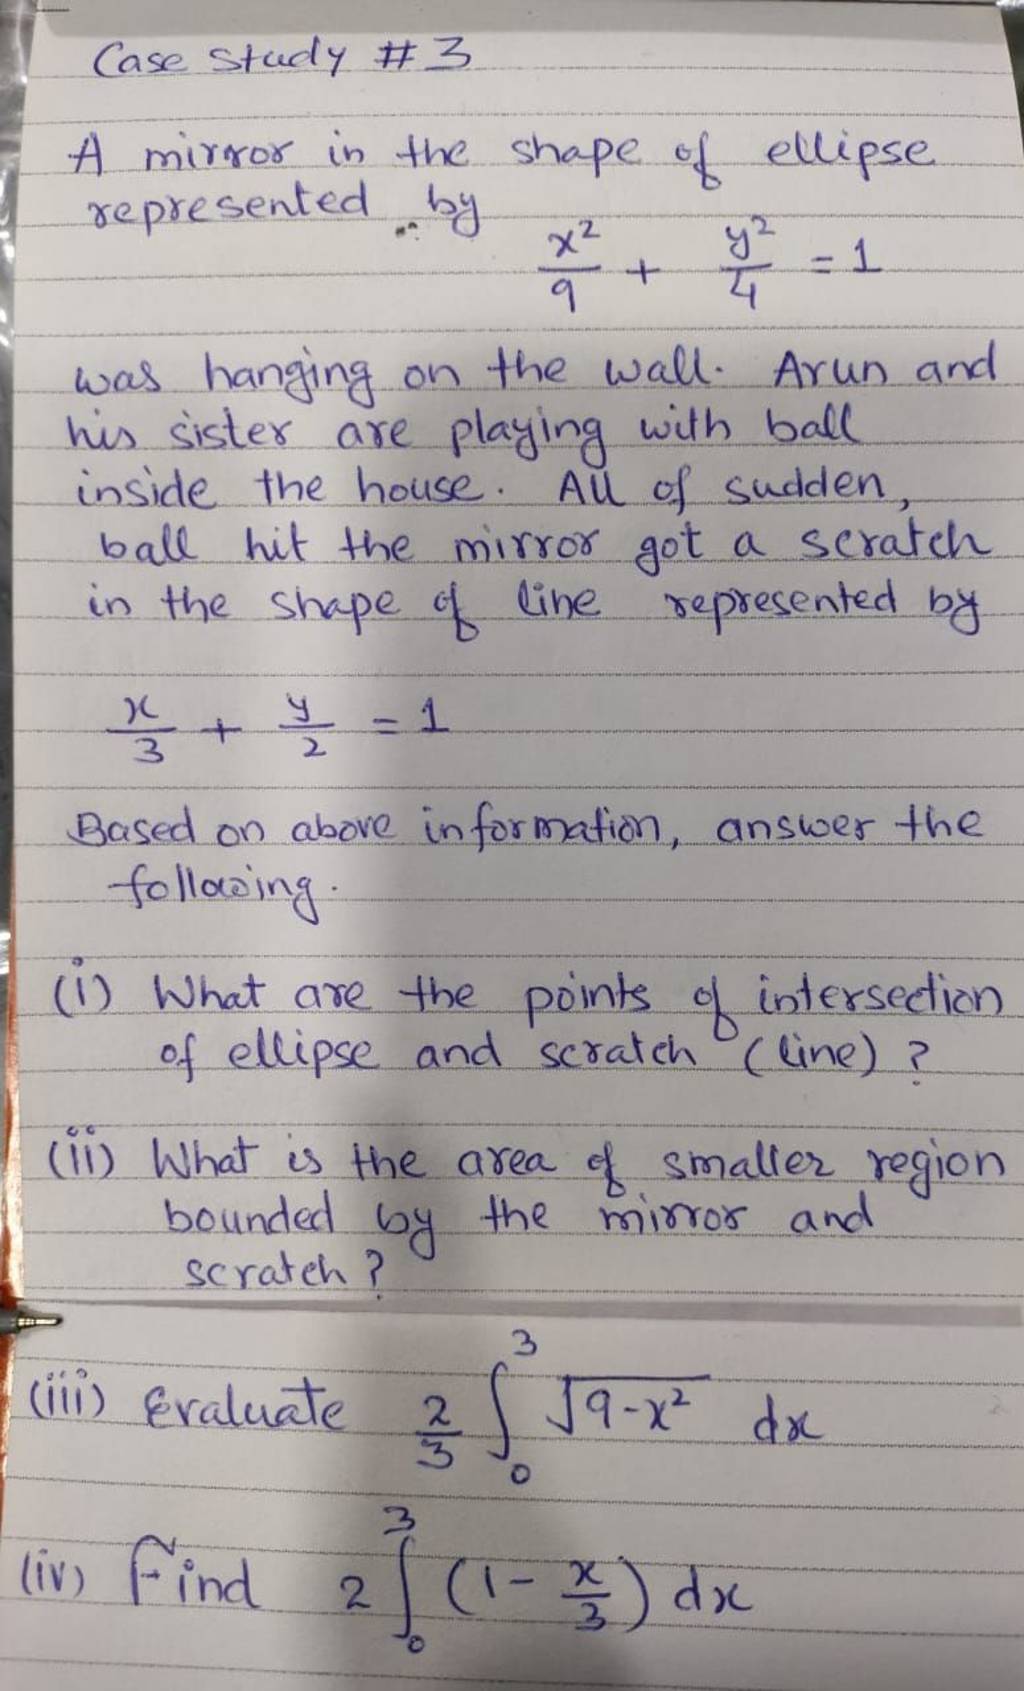 Case Study #3
A mirror in the shape of ellipse
represented by
x²/9 + y²/4 = 1
was hanging on the wall. Arun and
his sister are playing with ball
inside the house. All of sudden,
ball hit the mirror got a scratch
in the shape of line represented by
x/3 + y/2 = 1
Based on above information, answer the
following.
(i) What are the points of intersection
of ellipse and scratch (line) ?
(ii) What is the area of smaller region
bounded by the mirror and
scratch ?
(iii) Evaluate 2/3 ∫₀³ √(9-x²) dx
(iv) Find 2 ∫₀³ (1 - x/3) dx